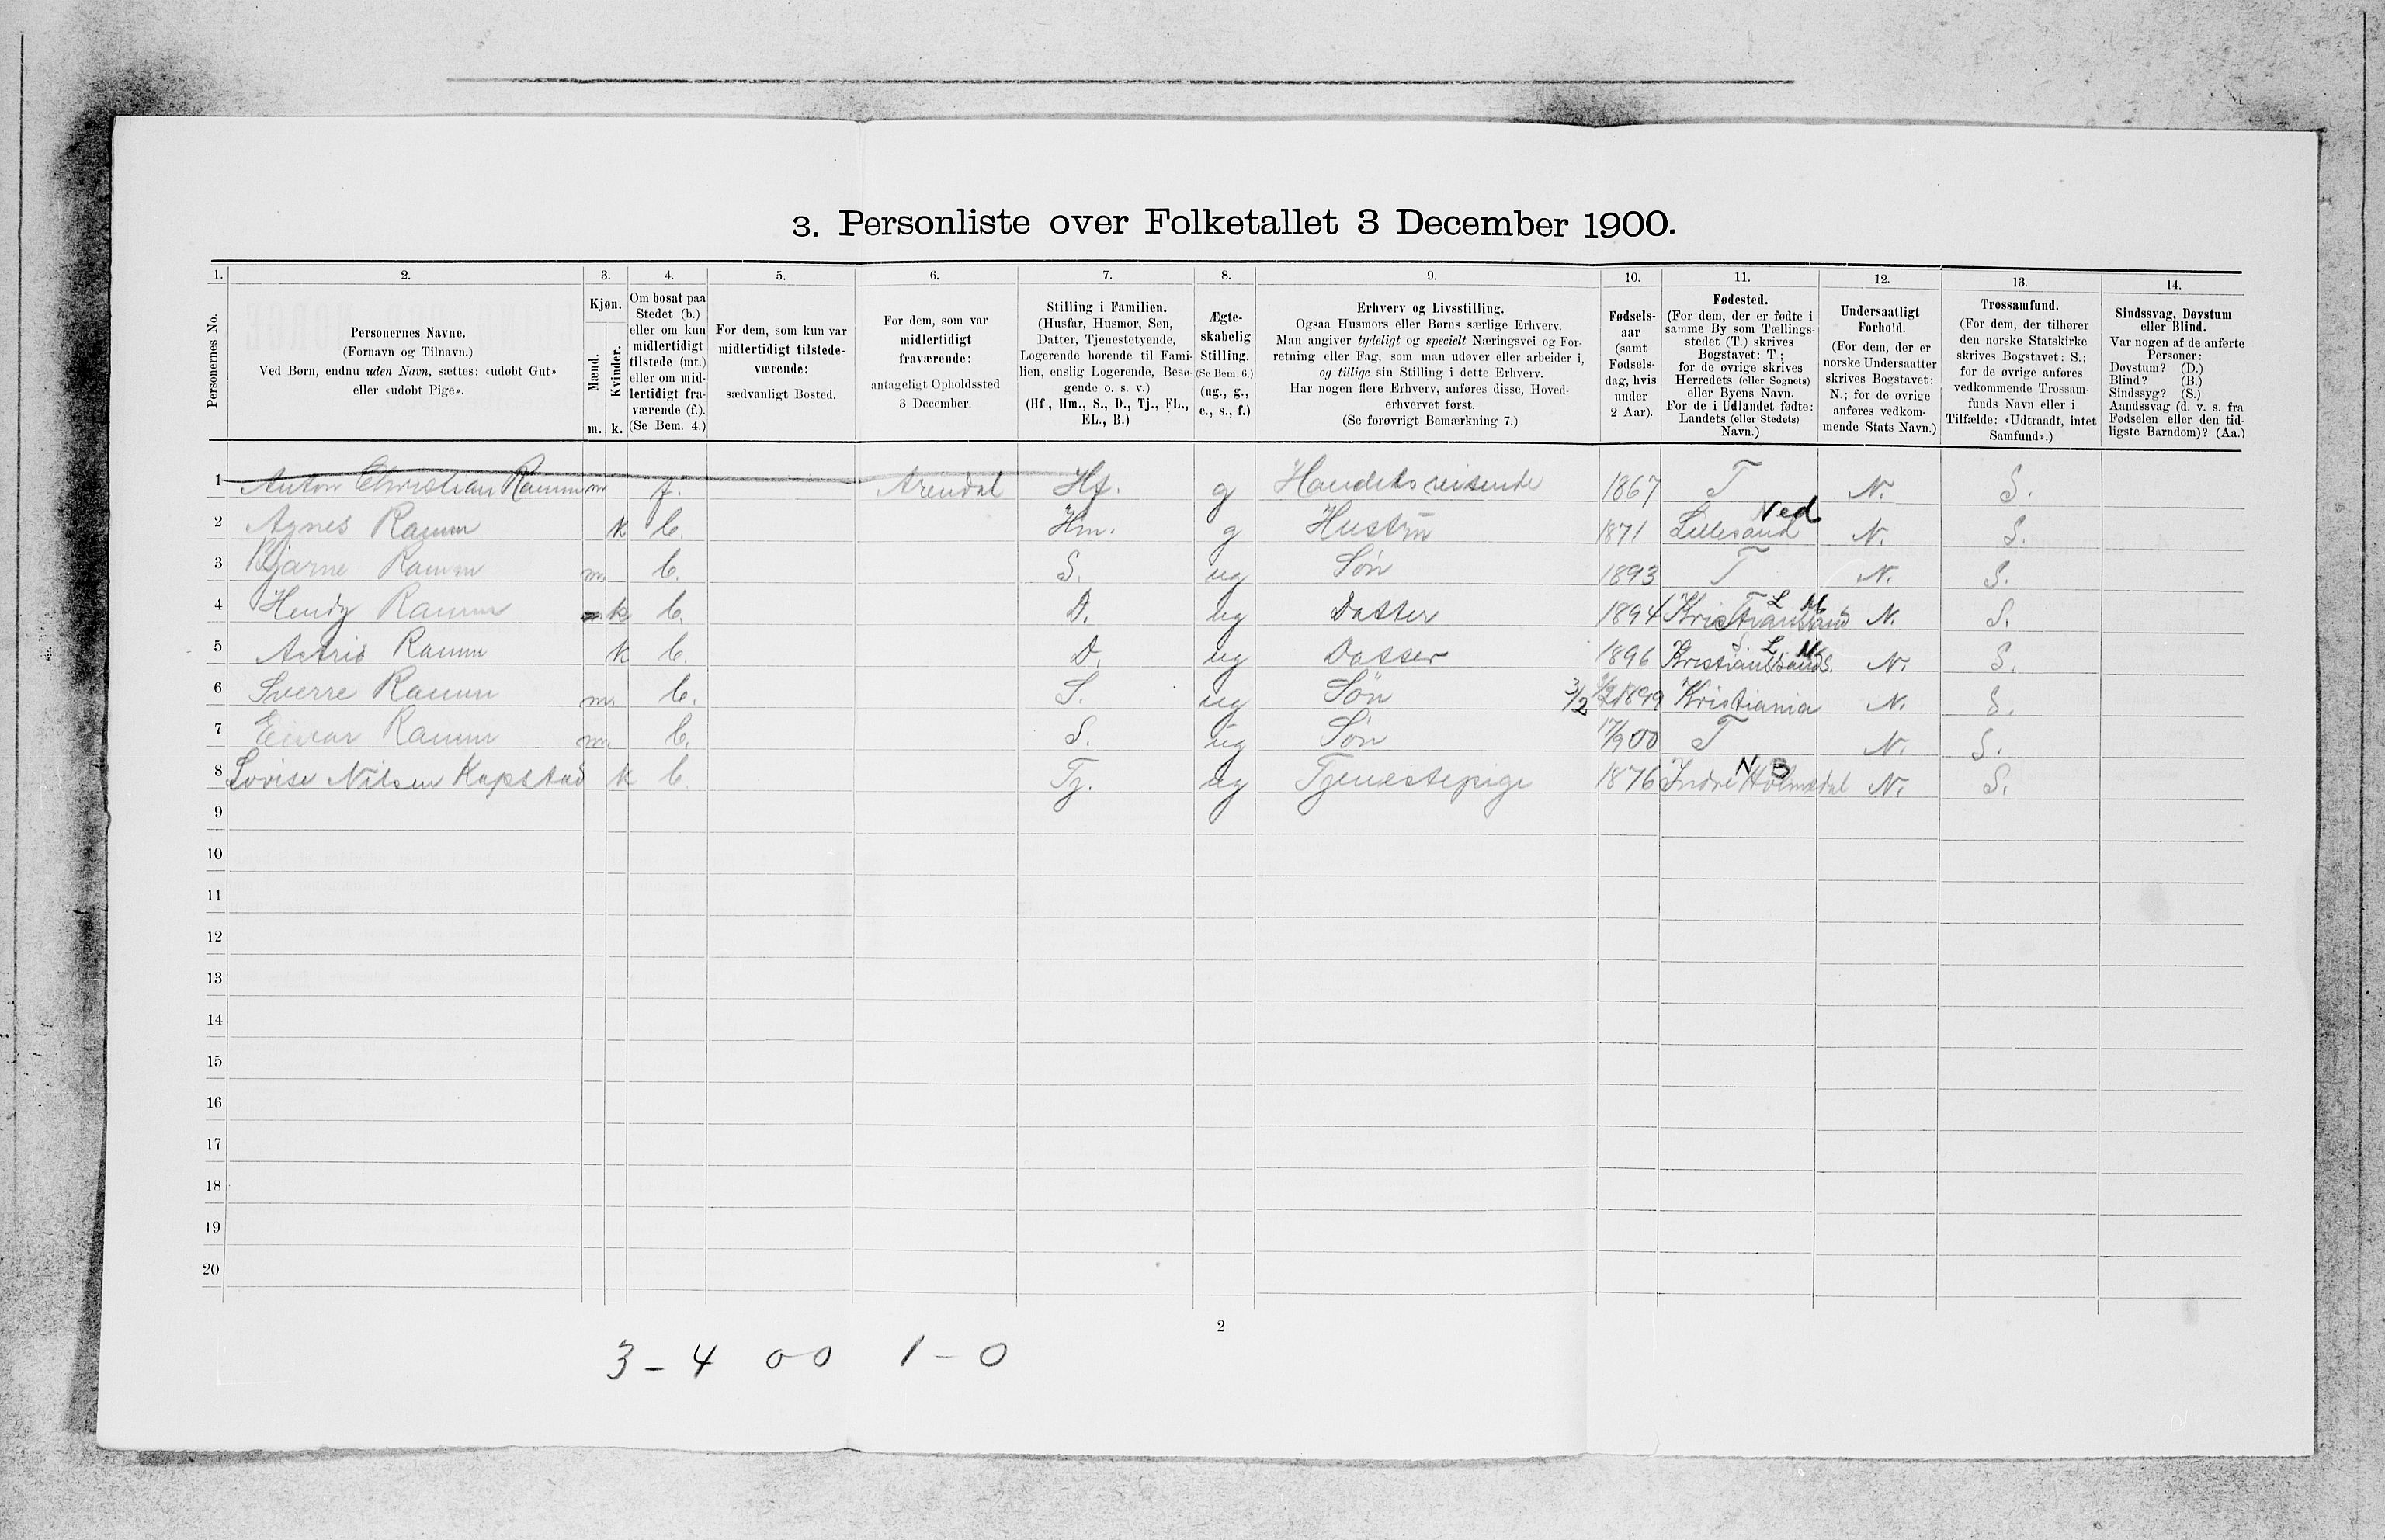 3. Personliste over Folketallet 3 December 1900.
1. 2. 3. 4. 5. 6. 7. 8. 9. 10. 11. 12. 13. 14.
Personernes No.
Personernes Navne.
(Fornavn og Tilnavn.)
Ved Børn, endnu uden Navn, sættes: «udobt Gut»
eller «udobt Pige».
Kjøn.
Mænd.
m.
Kvinder.
k.
Om bosat paa
Stedet (b.)
eller om kun
midlertidigt
tilstede (mt.)
eller om mid-
lertidigt fra-
værende (f.).
(Se Bem. 4.)
For dem, som kun var
midlertidigt tilstede-
værende:
sædvanligt Bosted.
For dem, som var
midlertidigt
fraværende:
antageligt Opholdssted
3 December.
Stilling i Familien.
(Husfar, Husmor, Søn,
Datter, Tjenestetyende,
Logerende hørende til Fami-
lien, enslig Logerende, Besø-
gende o. s. v.)
(Hf., Hm., S., D., Tj., FL.,
EL., B.)
Ægte-
skabelig
Stilling.
(Se Bem. 6.)
(ug., g.,
e., s., f.)
Erhverv og Livsstilling.
Ogsaa Husmors eller Børns særlige Erhverv.
Man angiver tydeligt og specielt Næringsvei og For-
retning eller Fag, som man udøver eller arbeider i,
og tillige sin Stilling i dette Erhverv.
Har nogen flere Erhverv, anføres disse, Hoved-
erhvervet først.
(Se forøvrigt Bemærkning 7.)
Fødsels-
aar
(samt
Fødsels-
dag, hvis
under
2 Aar).
Fødested.
(For dem, der er fødte i
samme By som Tællings-
stedet (T.) skrives
Bogstavet: T;
for de øvrige skrives
Herredets (eller Sognets)
eller Byens Navn.
For de i Udlandet fødte:
Landets (eller Stedets)
Navn.)
Undersaatligt
Forhold.
(For dem, der er
norske Undersaatter
skrives Bogstavet:
N.; for de øvrige
anføres vedkom-
mende Stats Navn.)
Trossamfund.
(For dem, der tilhører
den norske Statskirke
skrives Bogstavet: S.;
for de øvrige anføres
vedkommende Trossam-
funds Navn eller i
Tilfælde: «Udtraadt, intet
Samfund».)
Sindssvag, Døvstum
eller Blind.
Var nogen af de anførte
Personer:
Døvstum? (D.)
Blind? (B.)
Sindssyg? (S.)
Aandssvag (d. v. s. fra
Fødselen eller den tid-
ligste Barndom)? (Aa.)
1 Anton Christian Ramm m f. Arendal Hf. g Handelsreisende 1867 T N. S.
2 Agnes Ramm k b. Hm. g Hustru 1871 Lillesand Ned N. S.
3 Bjarne Ramm m. b. S. ug Søn 1893 T N. S.
4 Hendy Ramm k b. D. ug Datter 1894 Kristiansand L M N. S.
5 Astrid Ramm k b. D. ug Datter 1896 Kristiansand S. L M N. S.
6 Sverre Ramm m. b. S. ug Søn 3/2 1899 Kristiania N. S.
7 Einar Ramm m. b. S. ug Søn 17/9 00 T N. S.
8 Lovise Nilsen Kapstad k b. Tj. ug Tjenestepige 1876 Indre Holmedal N B N. S.
9
10
11
12
13
14
15
16
17
18
19
20
2
3 - 4 0 0 1 - 0